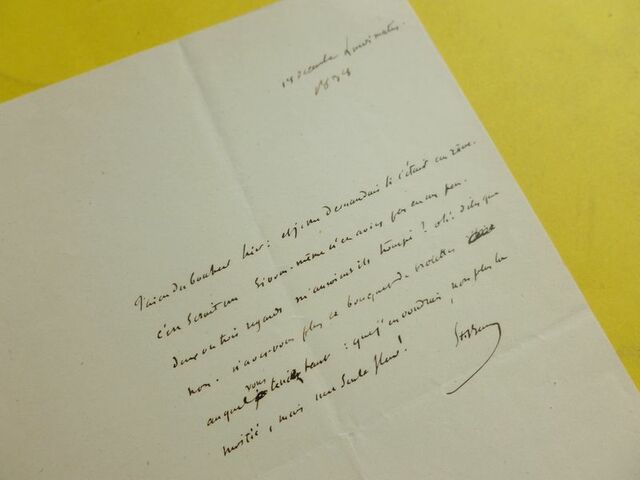 lundi matin
1839
J'ai eu du bonheur hier : et je me demandais si c'était un rêve.
c'en serait un si vous-même n'en aviez pas eu un peu.
deux ou trois regards m'auraient ils trompé ? oh ! dites que
non. n'avez-vous plus ce bouquet de violettes
vous
auquel teniez tant : que j'en voudrais, non plus la
moitié, mais une seule fleur !
Ste Beuve